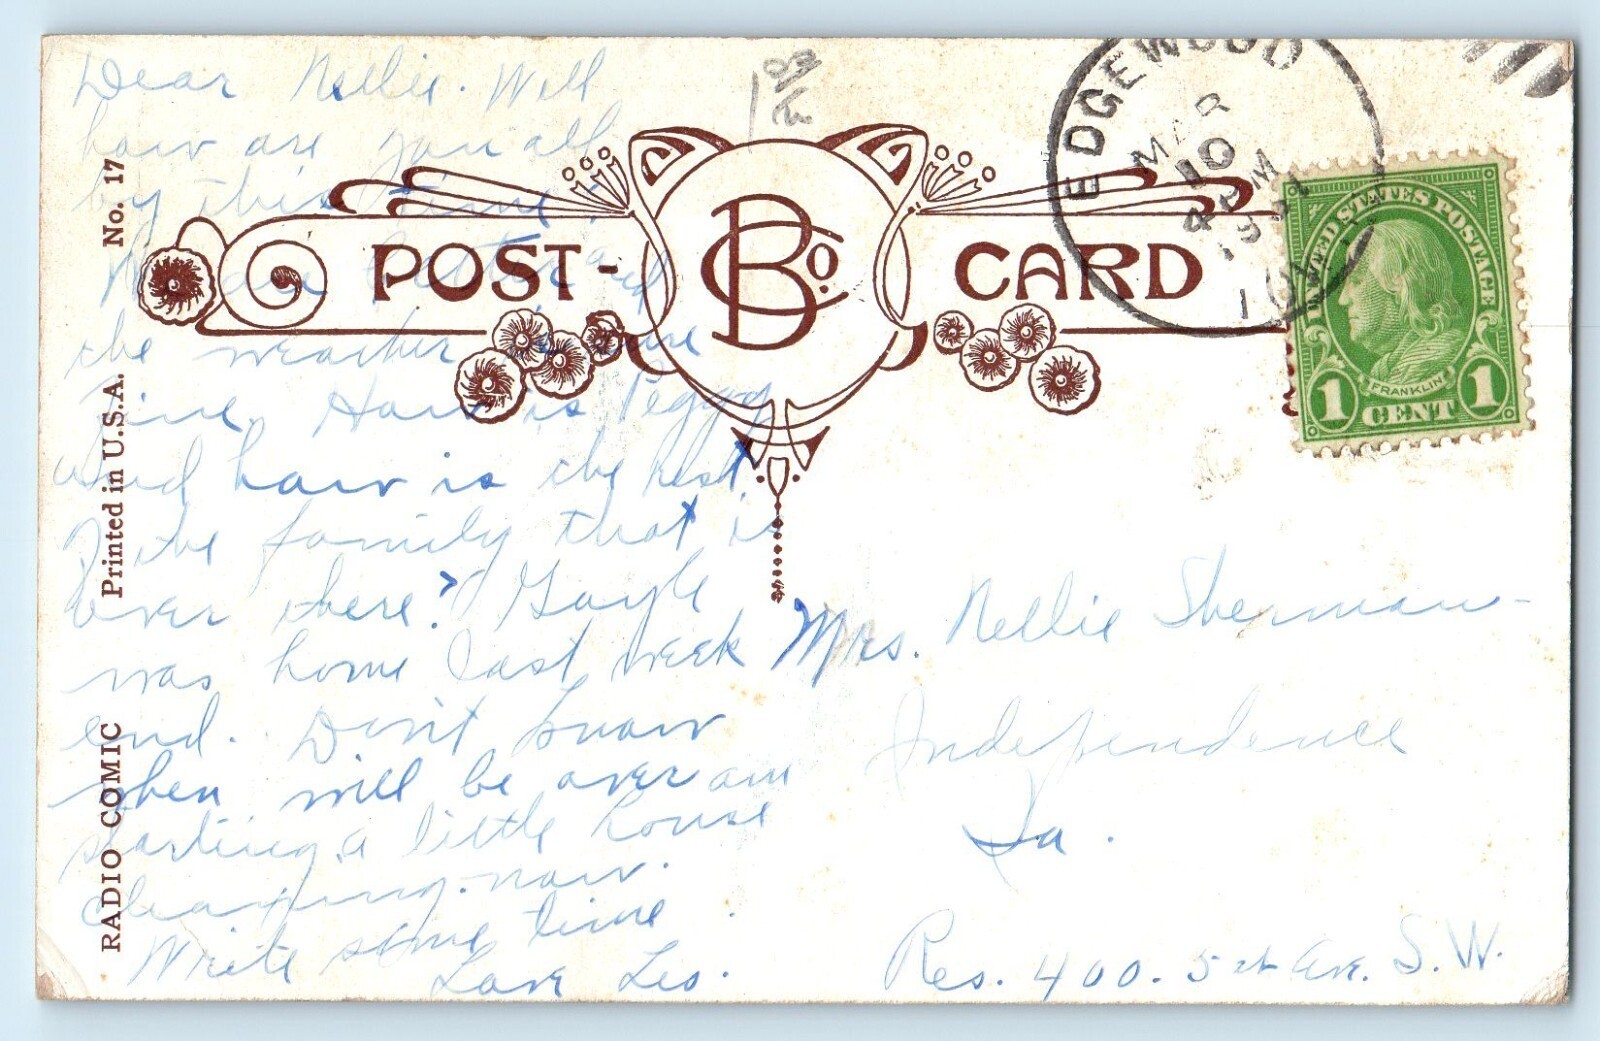 Dear Nellie. Well
how are you all
by this time.
the weather is
fine. How is Peggy
and how is the rest
of the family that is
over there? Gayle
was home last week
end. Don't know
when will be over am
starting a little house
cleaning now.
Write some time.
Love Leo.
POST-CARD
BCo
RADIO COMIC Printed in U.S.A. No. 17
EDGEWOOD
MAR
10
4 PM
IOWA
UNITED STATES POSTAGE
FRANKLIN
1 CENT 1
Mrs. Nellie Sherman-
Independence
Ia.
Res. 400. 5th Ave. S.W.